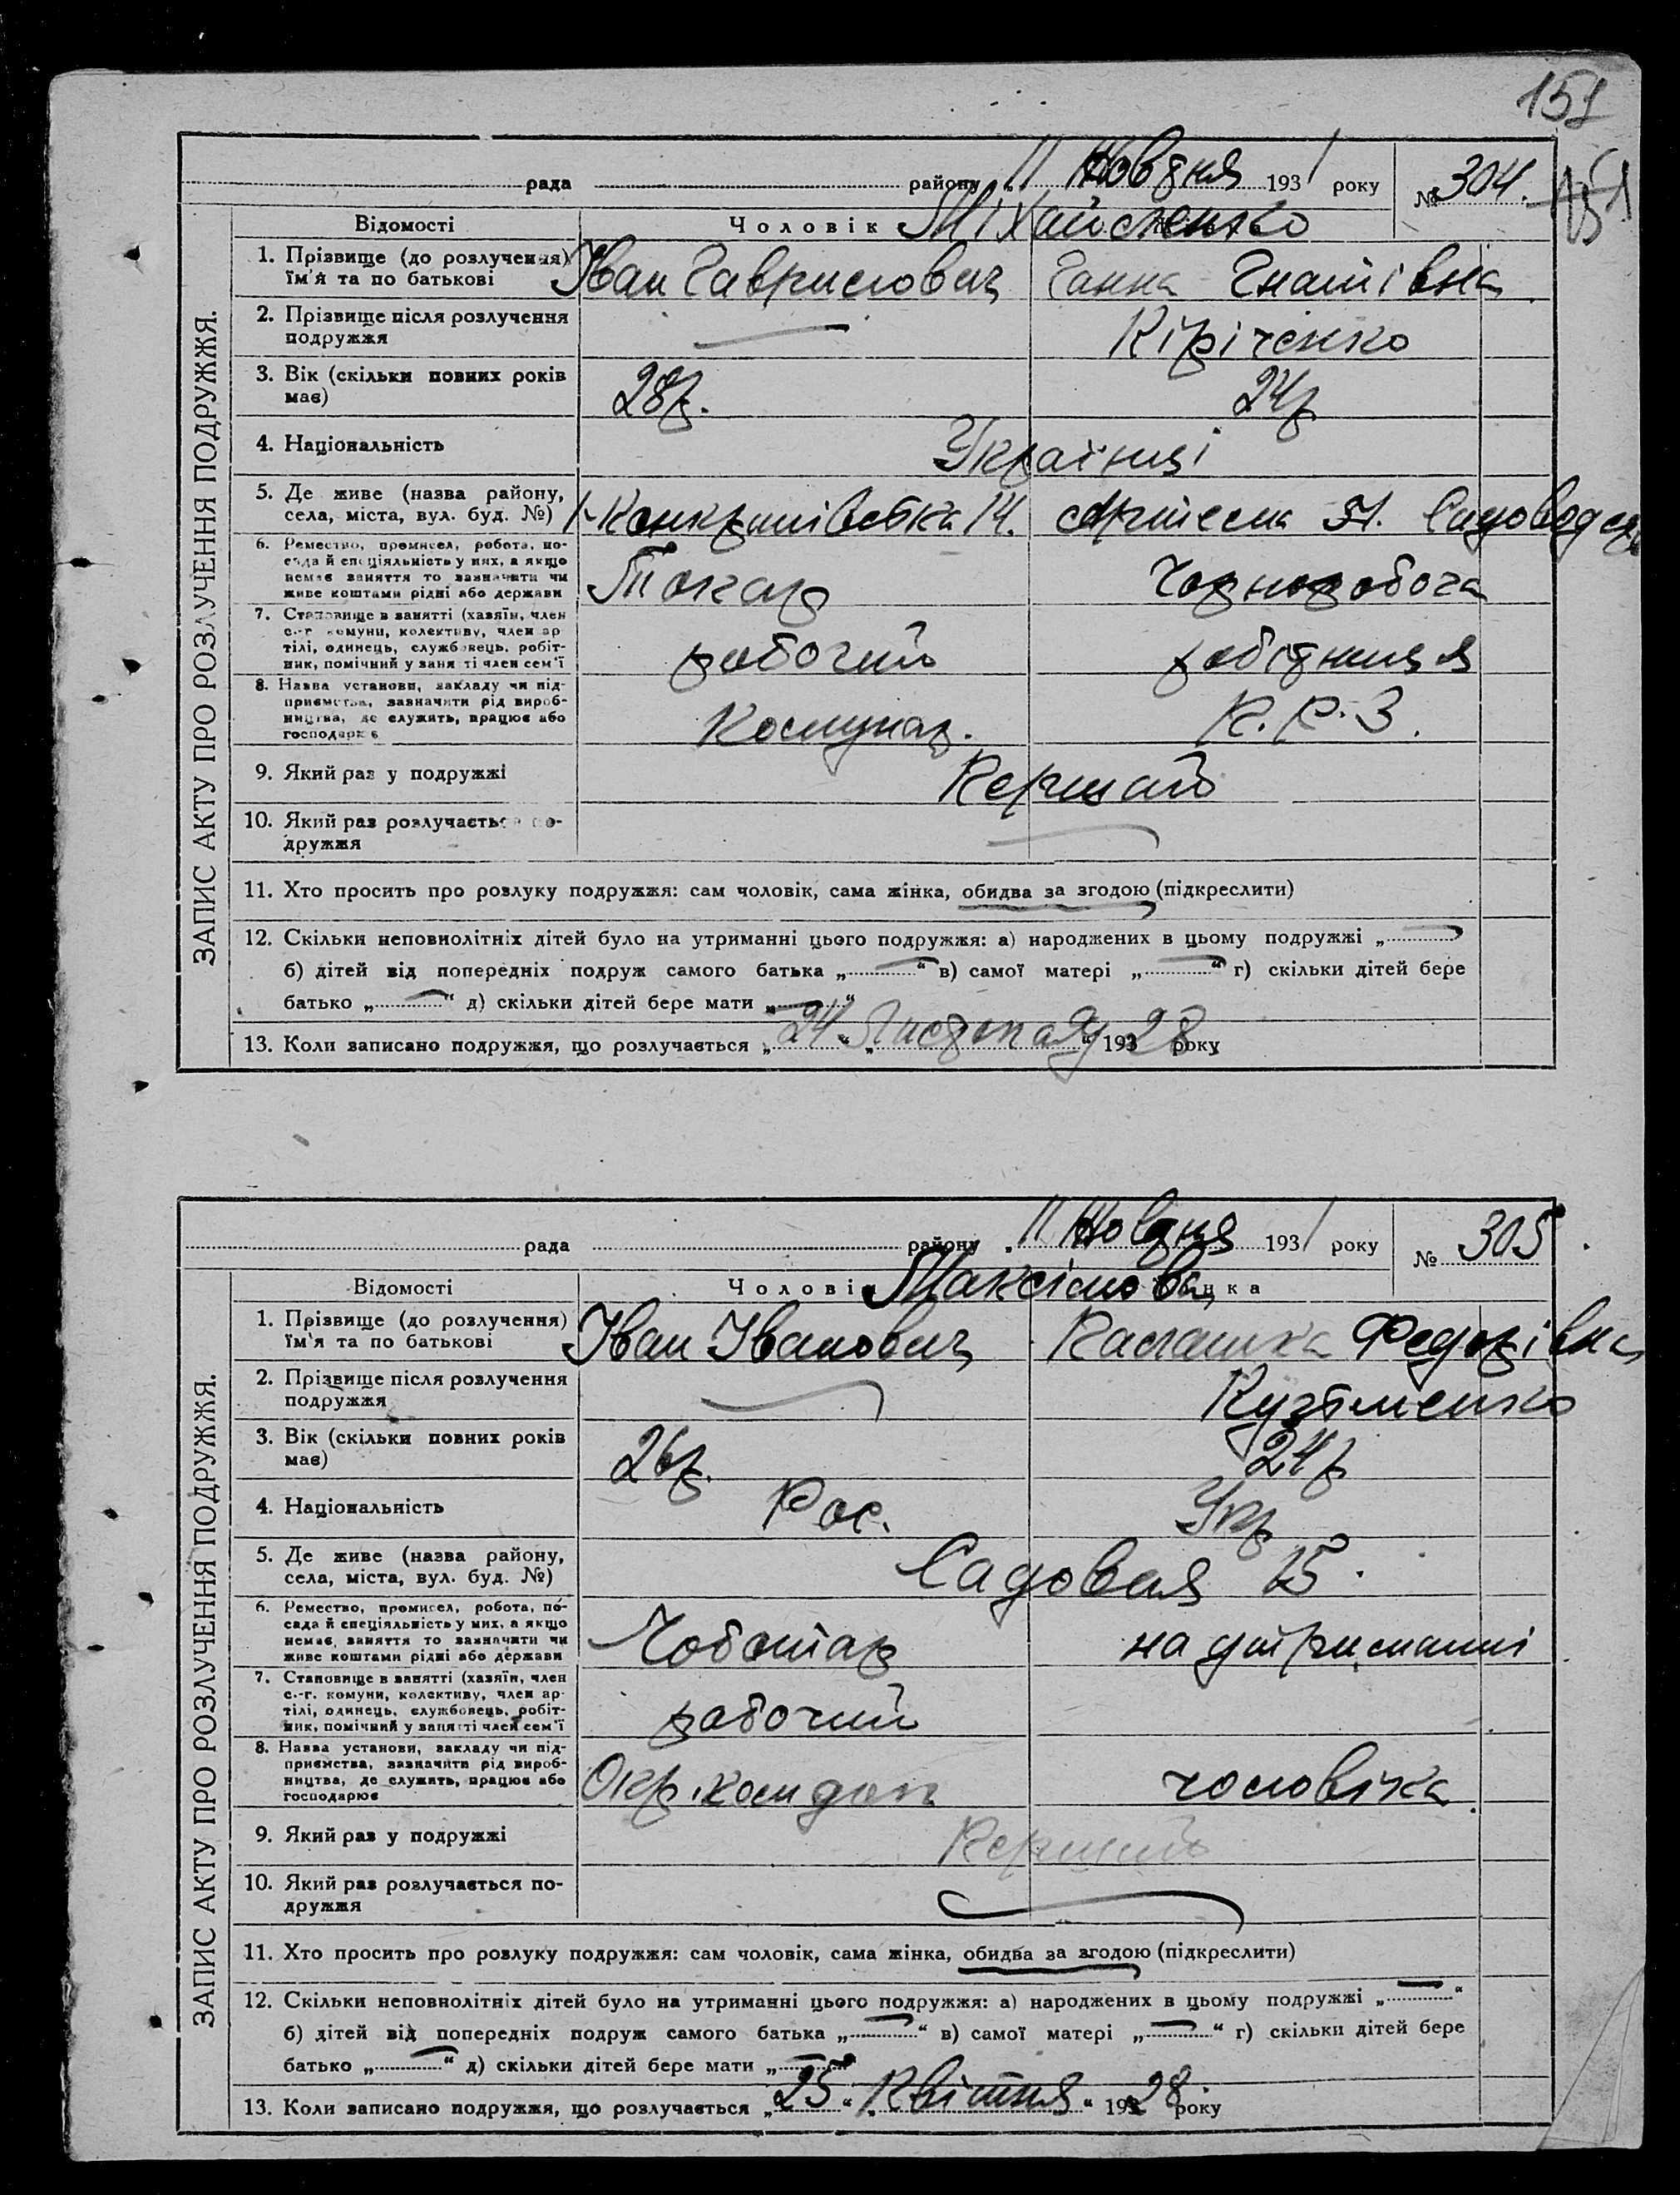 151
рада району „ 11 Жовтня 1931 року № 304.
151
ЗАПИС АКТУ ПРО РОЗЛУЧЕННЯ ПОДРУЖЖЯ.
Відомості Чоловік Міхайленко
1. Прізвище (до розлучення) Іван Гаврилович Ганна Гнатівна
ім'я та по батькові
2. Прізвище після розлучення Кіріченко
подружжя
3. Вік (скільки повних років 28р. 24р
має)
4. Національність Українці
5. Де живе (назва району,
села, міста, вул. буд. №) 14. Артема 51.
6. Ремество, промисел, робота, по-
сада й спеціяльність у них, а якщо
немає заняття то зазначити чи Токар Чорноробоча
живе коштами рідні або держави
7. Становище в занятті (хазяїн, член
с.-г. комуни, колективу, член ар-
тілі, одинець, службовець, робіт- робочий робітниця
ник, помічний у занятті член сем'ї
8. Назва установи, закладу чи під-
приємства, зазначити рід вироб-
ництва, де служить, працює або Комунар. К. Р. З.
господарює
9. Який раз у подружжі Перший
10. Який раз розлучається по-
дружжя
11. Хто просить про розлуку подружжя: сам чоловік, сама жінка, обидва за згодою (підкреслити)
12. Скільки неповнолітніх дітей було на утриманні цього подружжя: а) народжених в цьому подружжі „
б) дітей від попередніх подруж самого батька „ “ в) самої матері „ “ г) скільки дітей бере
батько „ “ д) скільки дітей бере мати „ “
13. Коли записано подружжя, що розлучається „24“ „Листопаду“ 193 28 року
рада району „ 11 Жовтня 1931 року № 305.
ЗАПИС АКТУ ПРО РОЗЛУЧЕННЯ ПОДРУЖЖЯ.
Відомості Чоловік Максімови Жінка
1. Прізвище (до розлучення) Іван Іванович Федорівна
ім'я та по батькові
2. Прізвище після розлучення Кузьменко
подружжя
3. Вік (скільки повних років 26р. 24р
має)
4. Національність Рос. Укр
5. Де живе (назва району, Садовая 15.
села, міста, вул. буд. №)
6. Ремество, промисел, робота, по-
сада й спеціяльність у них, а якщо
немає заняття то зазначити чи Чоботар на утриманні
живе коштами рідні або держави
7. Становище в занятті (хазяїн, член
с.-г. комуни, колективу, член ар-
тілі, одинець, службовець, робіт- робочий
ник, помічний у занятті член сем'ї
8. Назва установи, закладу чи під-
приємства, зазначити рід вироб-
ництва, де служить, працює або Окр. чоловіка.
господарює
9. Який раз у подружжі Перший
10. Який раз розлучається по-
дружжя
11. Хто просить про розлуку подружжя: сам чоловік, сама жінка, обидва за згодою (підкреслити)
12. Скільки неповнолітніх дітей було на утриманні цього подружжя: а) народжених в цьому подружжі „ “
б) дітей від попередніх подруж самого батька „ “ в) самої матері „ “ г) скільки дітей бере
батько „ “ д) скільки дітей бере мати „ “
13. Коли записано подружжя, що розлучається „25“ „Квітня“ 193 28 року